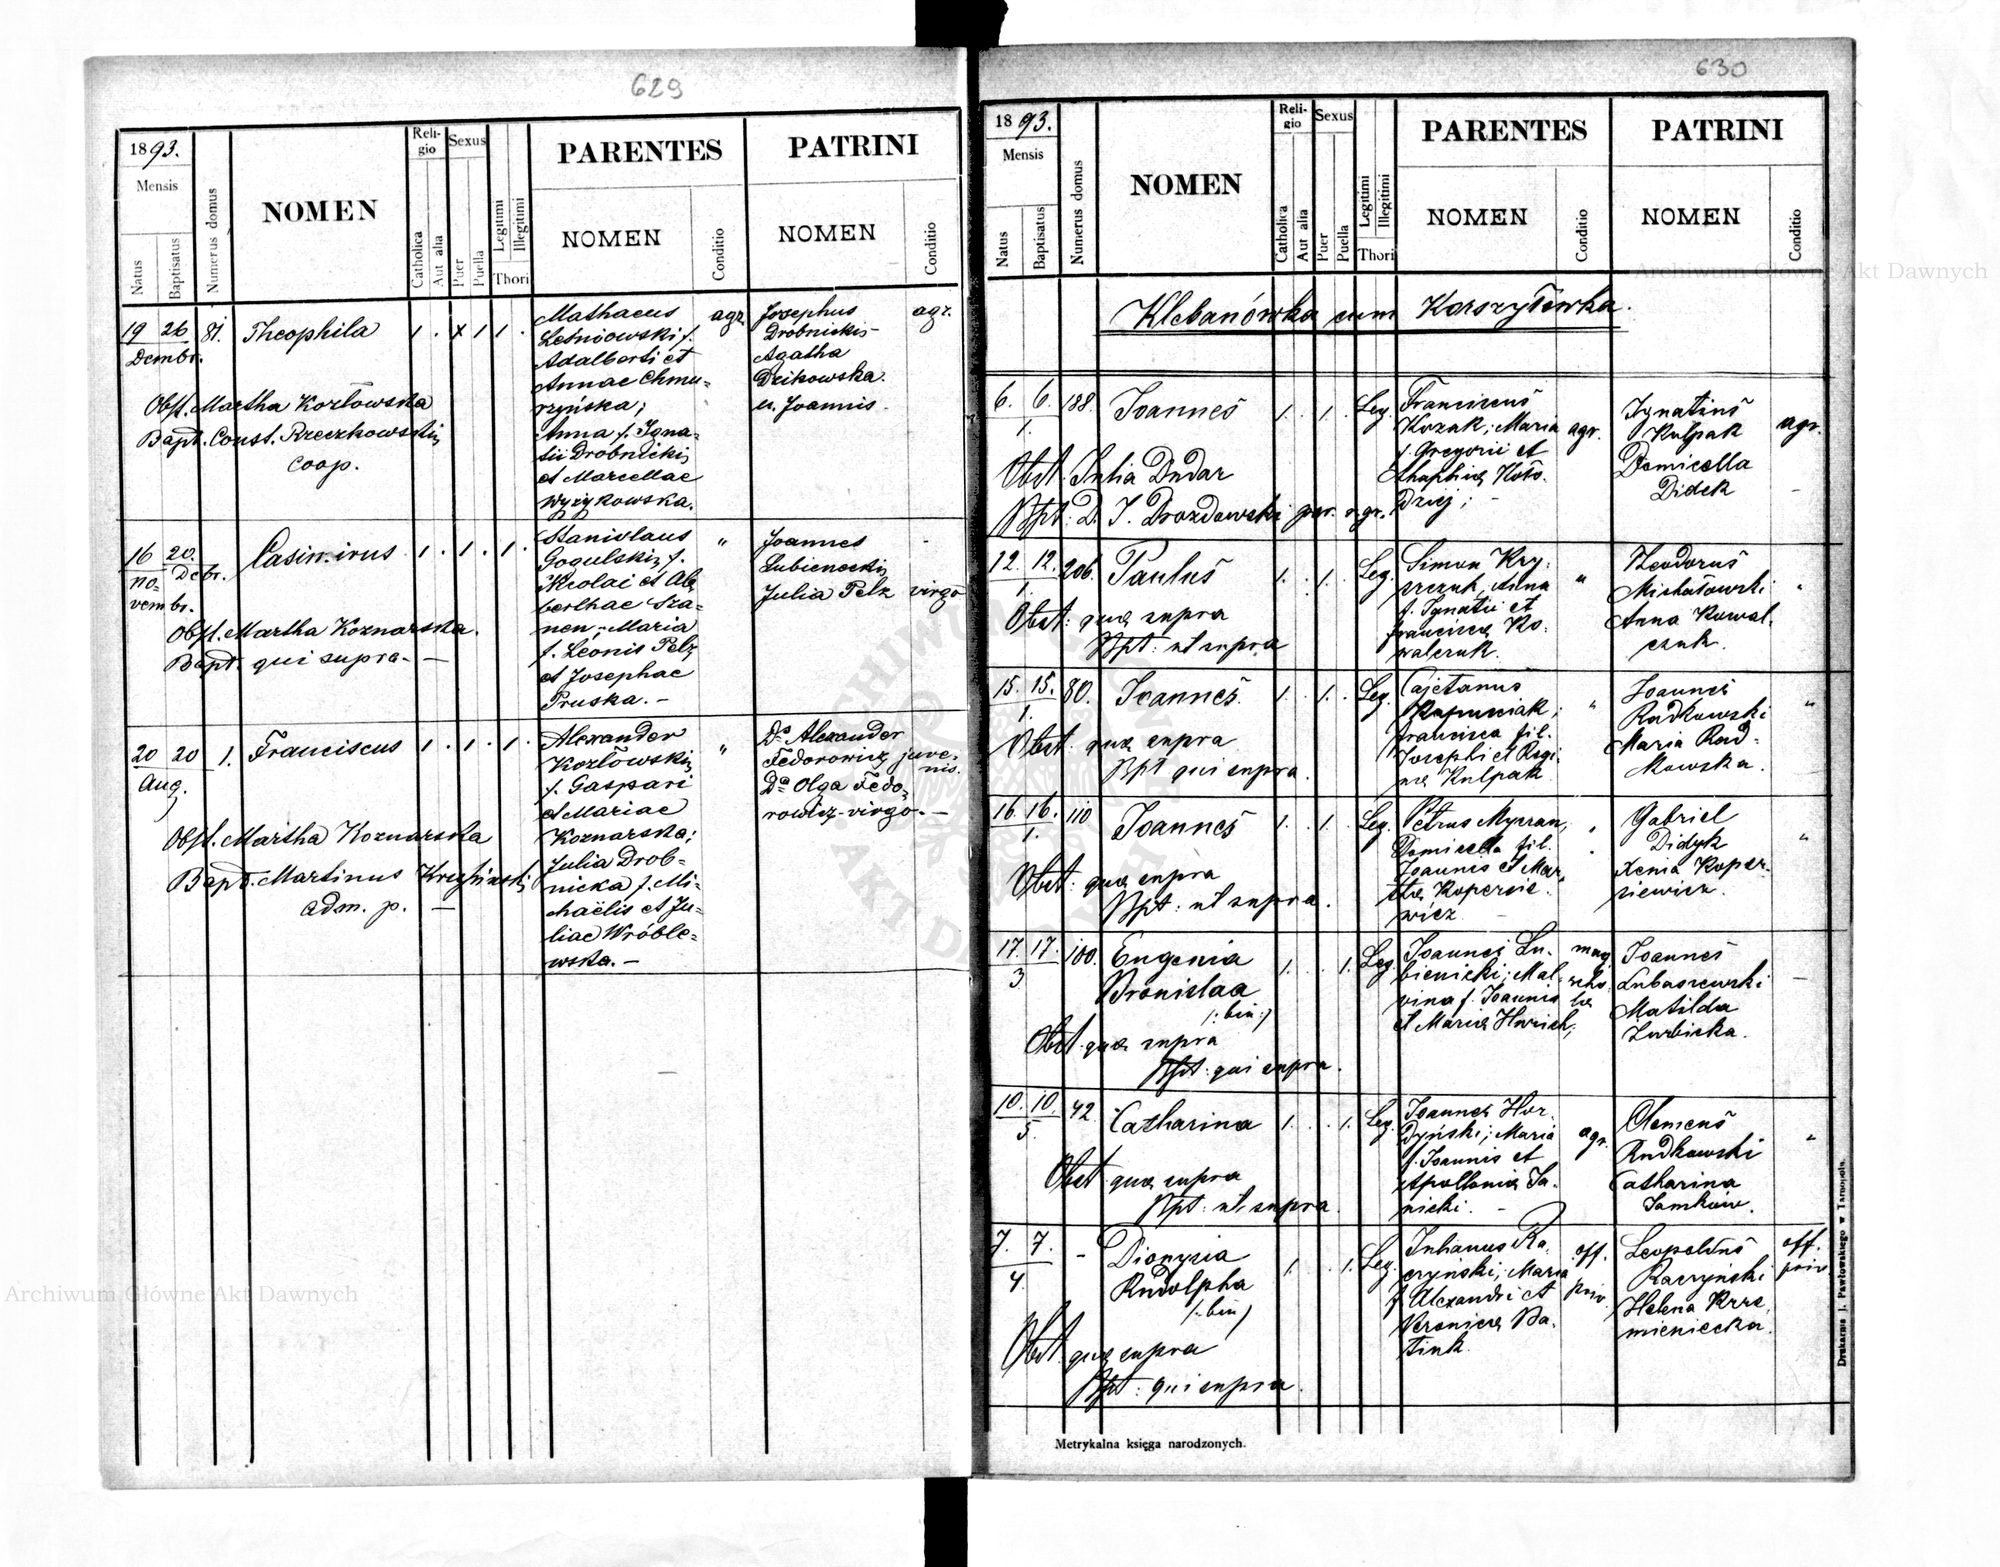 629
1893.
Mensis
Natus
Baptisatus
Numerus domus
NOMEN
Reli-
gio
Catholica
Aut alia
Sexus
Puer
Puella
Legitimi
Illegitimi
Thori
PARENTES
NOMEN
Conditio
PATRINI
NOMEN
Conditio
19 26 81. Theophila 1. x 1 1.
Dcembr.
Obst. Martha Kozłowska
Bapt. Const. Rzeczkowski
coop.
Mathaeus
Leśniowski f.
Adalberti et
Annae Chmu=
rzyńska;
Anna f. Igna-
tii Drobnicki
et Marcellae
Wyżykowska.
agr.
Josephus
Drobnicki-
Agatha
Dzikowska.
u. Joannis.
agr.
16 20. Casimirus 1. 1. 1.
no- Debr.
vembr.
Obst. Martha Koznarska.
Bapt. qui supra. —
Stanislaus
Gogulski f.
Nicolai et
nen; Maria
f. Leonis Pelz
et Josephae
Pruska. –
"
Joannes
Lubieniecki
Julia Pelz virgo
20 20 1. Franciscus 1. 1. 1.
Aug.
Obst. Martha Koznarska
Bapt. Martinus
adm. p. —
Alexander
Kozłowski
f. Gaspari
et Mariae
Koznarska;
Julia Drob=
nicka f. Mi-
chaëlis et Ju=
liae Wróble=
wska. –
"
Ds Alexander
Fedorowicz juve-
nis.
Da Olga Fedo=
rowicz-virgo. —
630
1893.
Mensis
Natus
Baptisatus
Numerus domus
NOMEN
Reli-
gio
Catholica
Aut alia
Sexus
Puer
Puella
Legitimi
Illegitimi
Thori
PARENTES
NOMEN
Conditio
PATRINI
NOMEN
Conditio
Klebanówka cum Korszyłówka.
6. 6. 188. Joannes 1. 1. Leg.
1.
Obst. Julia Dudar
Bpt: D. J. Drozdowski par. r. gr.
Franciscus
Kozak; Maria
f. Gregorii et
Koło-
dziej; –
agr.
Ignatius
Kulpak
Domicella
Didek
agr.
12. 12. 206. Paulus 1. 1. Leg.
1.
Obst: quæ supra
Bpt: ut supra
Simon Kry-
szczuk, Anna
f. Ignatii et
Franciscæ Ko-
walczuk.
"
Theodorus
Michałowski
Anna Kowal-
czuk.
"
15. 15. 80. Joannes 1. 1. Leg.
1.
Obst: quæ supra
Bpt qui supra.
Cajetanus
Kapusciak;
Francisca fil.
Josephi et Regi-
næ Kulpak
"
Joannes
Radkowski
Maria Rad-
kowska.
"
16. 16. 110 Joannes 1. 1. Leg.
1.
Obst: quæ supra
Bpt: ut supra.
Petrus
Domicella fil.
Joannis et Mar-
thæ Kopersie-
wicz
Gabriel
Didyk
Xenia Koper-
siewicz.
"
17. 17. 100. Eugenia 1. 1. Leg
3
Bronislaa
/:bin:/
Obst: quæ supra
Bpt: qui supra.
Joannes Lu-
bienicki; Mal-
vina f. Joannis
et Mariæ
Joannes
Lubaszewski
Matilda
Zurbicka.
–
10. 10. 42. Catharina 1. 1. Leg.
5.
Obst quæ supra
Bpt: ut supra.
Joannes Hor-
dyński; Maria
f. Joannis et
Apolloniæ Ja-
nicki. –
agr.
Clemens
Rudkowski
Catharina
Jamków.
"
7. 7. – Dionysia 1. 1. Leg.
4.
Rudolpha
/:bin/
Obst quæ supra
Bpt: qui supra.
Julianus Ra-
czyński; Maria
f. Alexandri et
Veronicæ Ba-
tink.
off.
priv.
Leopoldus
Raczyński
Helena Krze-
mieniecka.
off.
priv
Metrykalna księga narodzonych.
Drukarnia J. Pawłowskiego w Tarnopolu.
Archiwum Główne Akt Dawnych
Archiwum Główne Akt Dawnych